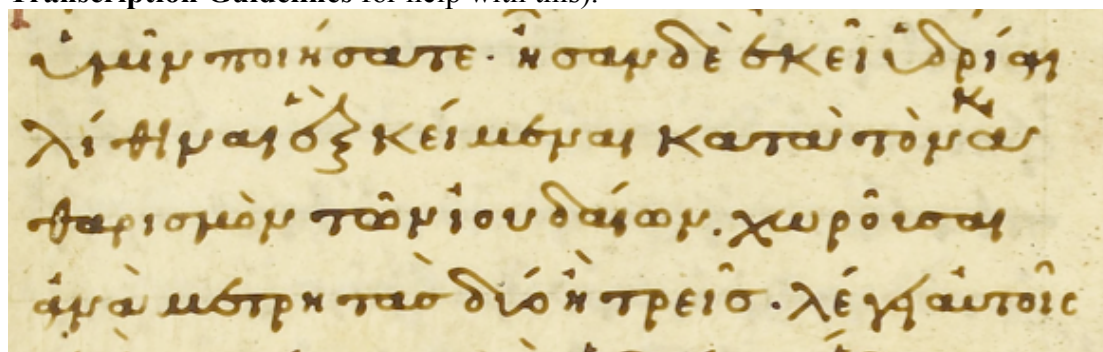 Transcription Guidelines for help with this).
ὑμῖν ποιησατε· ἦσαν δὲ ἐκεῖ ὑδρίαι
λίθιναι ἓξ κείμεναι κατὰ τὸν κα
θαρισμὸν τῶν ἰουδαίων. χωροῦσαι
ἀνὰ μετρητὰς δύο ἢ τρεῖς· λέγει αὐτοῖς